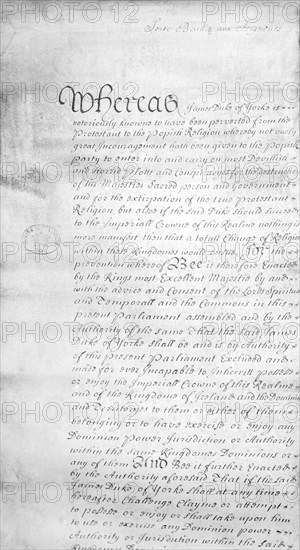 Soit Baillé aux
Whereas James Duke of Yorke is
notoriously knowne to have been perverted from the
Protestant to the Popish Religion whereby not onely
great Encouragement hath been given to the Popish
party to enter into and carry on most Devillish
and Horrid Plotts and Conspiracyes for the destruction
of his Majesties Sacred person and Government
and for the extirpation of the true Protestant
Religion, but also if the said Duke should succeed
to the Imperiall Crowne of this Realme nothing is
more manifest then that a totall Change of Religion
within these Kingdomes would ensue For the
prevention whereof Bee it therefore Enacted
by the Kings most Excellent Majestie by and
with the advice and Consent of the Lords Spirituall
and Temporall and the Commons in this
present Parliament assembled and by the
Authority of the same That the said James
Duke of Yorke shall be and is by Authority
of this present Parliament Excluded and
made for ever Incapable to Inheritt possesse
or enjoy the Imperiall Crowne of this Realme
and of the Kingdome of Ireland and the Dominions
and Territoryes to them or either of them
belonging or to have exercise or enjoy any
Dominion Power Jurisdiction or Authority
within the same Kingdomes Dominions or
any of them And Bee it further Enacted
by the Authority aforesaid That if the said
James Duke of Yorke shall at any time
hereafter Challenge Clayme or attempt
to posses or enjoy or shall take upon him
to use or exercise any Dominion power
Authority or Jurisdiction within the said
Kingdomes